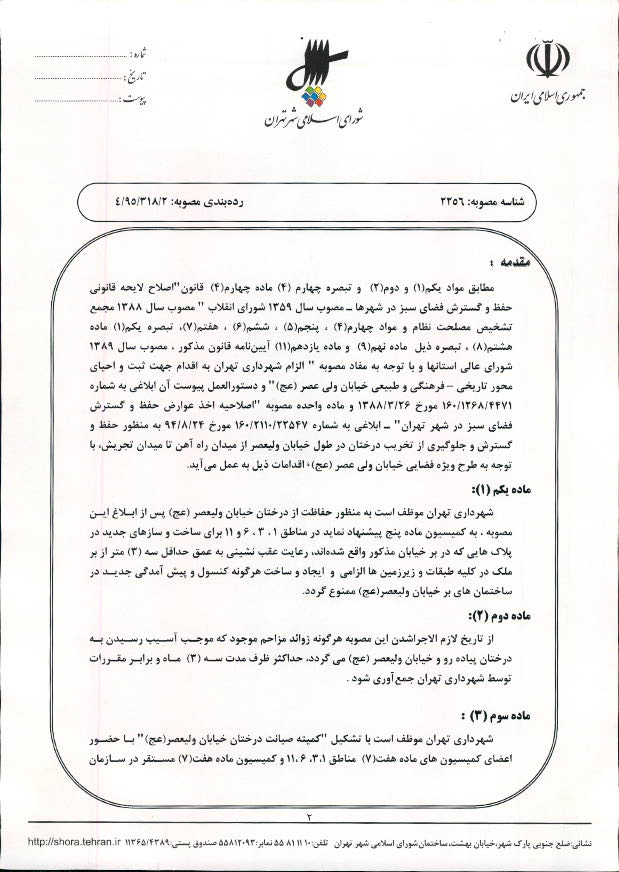 جمهوری اسلامی ایران
شورای اسلامی شهر تهران
شماره :
تاریخ :
پیوست :
شناسه مصوبه: ۲۲۵۶
رده‌بندی مصوبه: ۴/۹۵/۳۱۸/۲
مقدمه :
مطابق مواد یکم(۱) و دوم(۲) و تبصره چهارم (۴) ماده چهارم(۴) قانون"اصلاح لایحه قانونی
حفظ و گسترش فضای سبز در شهرها ـ مصوب سال ۱۳۵۹ شورای انقلاب " مصوب سال ۱۳۸۸ مجمع
تشخیص مصلحت نظام و مواد چهارم(۴) ، پنجم(۵) ، ششم(۶) ، هفتم(۷)، تبصره یکم(۱) ماده
هشتم(۸) ، تبصره ذیل ماده نهم(۹) و ماده یازدهم(۱۱) آیین‌نامه قانون مذکور ، مصوب سال ۱۳۸۹
شورای عالی استانها و با توجه به مفاد مصوبه " الزام شهرداری تهران به اقدام جهت ثبت و احیای
محور تاریخی – فرهنگی و طبیعی خیابان ولی عصر (عج)" و دستورالعمل پیوست آن ابلاغی به شماره
۱۶۰/۱۲۶۸/۴۴۷۱ مورخ ۱۳۸۸/۳/۲۶ و ماده واحده مصوبه "اصلاحیه اخذ عوارض حفظ و گسترش
فضای سبز در شهر تهران" ـ ابلاغی به شماره ۱۶۰/۲۱۱۰/۲۲۵۴۷ مورخ ۹۴/۸/۲۴ به منظور حفظ و
گسترش و جلوگیری از تخریب درختان در طول خیابان ولیعصر از میدان راه آهن تا میدان تجریش، با
توجه به طرح ویژه فضایی خیابان ولی عصر (عج)، اقدامات ذیل به عمل می‌آید.
ماده یکم (۱):
شهرداری تهران موظف است به منظور حفاظت از درختان خیابان ولیعصر (عج) پس از ابلاغ این
مصوبه ، به کمیسیون ماده پنج پیشنهاد نماید در مناطق ۱ ، ۳ ، ۶ و ۱۱ برای ساخت و سازهای جدید در
پلاک هایی که در بر خیابان مذکور واقع شده‌اند، رعایت عقب نشینی به عمق حداقل سه (۳) متر از بر
ملک در کلیه طبقات و زیرزمین ها الزامی و ایجاد و ساخت هرگونه کنسول و پیش آمدگی جدید در
ساختمان های بر خیابان ولیعصر(عج) ممنوع گردد.
ماده دوم (۲):
از تاریخ لازم الاجراشدن این مصوبه هرگونه زوائد مزاحم موجود که موجب آسیب رسیدن به
درختان پیاده رو و خیابان ولیعصر (عج) می گردد، حداکثر ظرف مدت سه (۳) ماه و برابر مقررات
توسط شهرداری تهران جمع‌آوری شود .
ماده سوم (۳) :
شهرداری تهران موظف است با تشکیل "کمیته صیانت درختان خیابان ولیعصر(عج)" با حضور
اعضای کمیسیون های ماده هفت(۷) مناطق ۳،۱، ۱۱،۶ و کمیسیون ماده هفت(۷) مستقر در سازمان
۲
نشانی:ضلع جنوبی پارک شهر،خیابان بهشت،ساختمان شورای اسلامی شهر تهران تلفن:۱۰ ۱۱ ۸۱ ۵۵ نمابر:۵۵۸۱۲۰۹۳ صندوق پستی:۱۱۳۶۵/۴۳۸۹ http://shora.tehran.ir